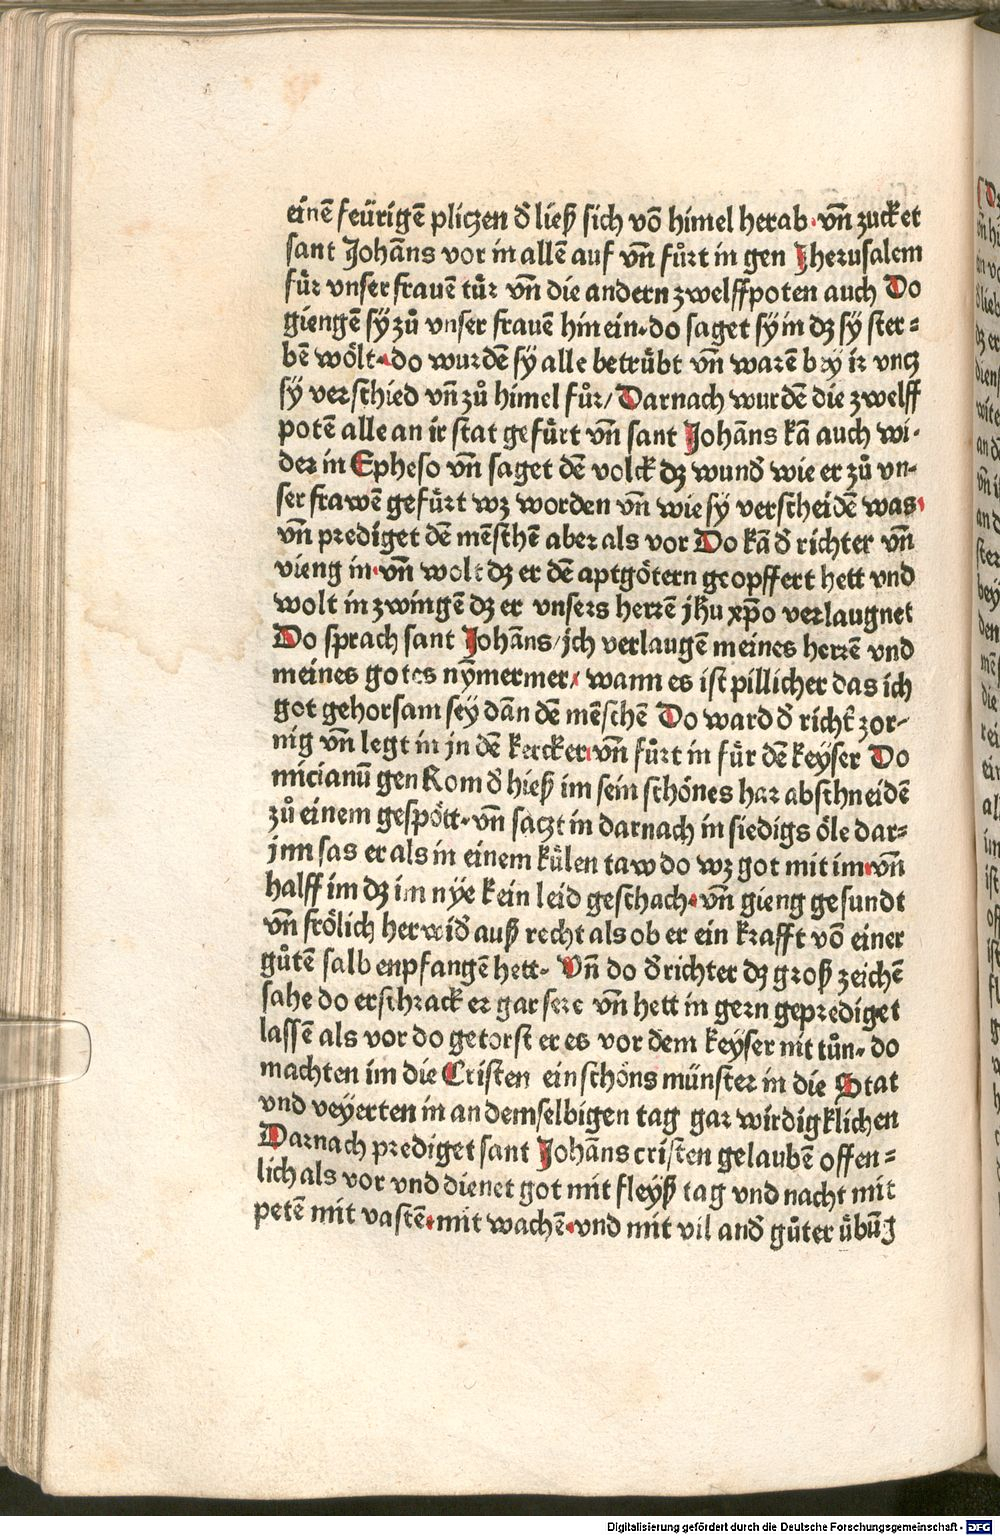 einē feürigē pliczen đ ließ sich võ himel herab · vñ zucket
sant Johãns vor in allē auf vñ fůrt in gen Jherusalem
für vnser frauē tür vñ die andern zwelffpoten auch Do
giengē sy zů vnser frauē hin ein · do saget sy in dz sy ster=
bē wölt · do wurdē sy alle betrübt vñ warē bey ir vncz
sy verschied vñ zů himel fůr / Darnach wurdē die zwelff
potē alle an ir stat gefürt vñ sant Johãns kã auch wi-
der in Epheso vñ saget dē volck dz wunđ wie er zů vn-
ser frawē gefürt wz worden vñ wie sy verscheidē was ·
vñ prediget dē mēschē aber als vor Do kã đ richter vñ
vieng in · vñ wolt dz er dē aptgötern geopffert hett vnd
wolt in zwingē dz er vnsers herrē jhu xp̄o verlaugnet
Do sprach sant Johãns / jch verlaugē meines herrē vnd
meines gotes nym̄ermer / wann es ist pillicher das ich
got gehorsam sey dãn dē mēschē Do ward đ richt̄ zor-
nig vñ legt in jn dē kercker · vñ fůrt in für dē keyser Do
micianū gen Rom đ hieß im sein schönes har abschneidē
zů einem gespött · vñ saczt in darnach in siedigs öle dar=
jnn sas er als in einem külen taw do wz got mit im · vñ
halff im dz im nye kein leid geschach · vñ gieng gesundt
vñ frölich herwiđ auß recht als ob er ein krafft võ einer
gůtē salb enpfangē hett · Vñ do đ richter dz groß zeichē
sahe do erschrack er gar sere vñ hett in gern geprediget
lassē als vor do getorst er es vor dem keyser nit tůn · do
machten im die Cristen ein schöns münster in die Stat
vnd veyerten in an demselbigen tag gar wirdigklichen
Darnach prediget sant Johãns cristen gelaubē offen=
lich als vor vnd dienet got mit fleyß tag vnd nacht mit
petē mit vastē · mit wachē · vnd mit vil anđ gůter übūg
Digitalisierung gefördert durch die Deutsche Forschungsgemeinschaft - DFG